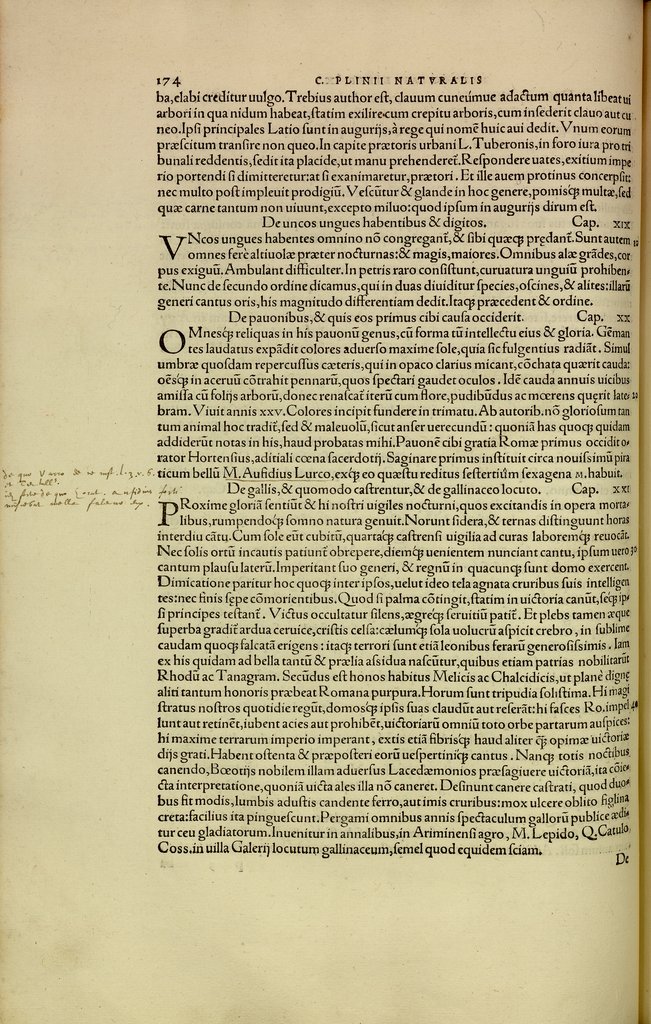 174 C. PLINII NATVRALIS
ba,elabi creditur uulgo. Trebius author eſt, clauum cuneumue adactum quanta libeat ui
arbori in qua nidum habeat,ſtatim exilire cum crepitu arboris,cum inſederit clauo aut cu
neo.Ipſi principales Latio ſunt in augurijs,à rege qui nomē huic aui dedit. Vnum eorum
præſcitum tranſire non queo.In capite prætoris urbani L.Tuberonis,in foro iura pro tri
bunali reddentis,ſedit ita placide,ut manu prehenderet̃.Reſpondere uates,exitium impe
rio portendi ſi dimitteretur:at ſi exanimaretur,prætori. Et ille auem protinus concerpſit:
nec multo poſt impleuit prodigiũ. Veſcũtur & glande in hoc genere,pomisq; multæ,ſed
quæ carne tantum non uiuunt,excepto miluo:quod ipſum in augurijs dirum eſt.
De uncos ungues habentibus & digitos. Cap. XIX
VNcos ungues habentes omnino nō congregant̃,& ſibi quæq; prędant̃.Sunt autem 10
omnes ferè altiuolæ præter nocturnas:& magis,maiores.Omnibus alæ grãdes,cor
pus exiguũ.Ambulant difficulter.In petris raro conſiſtunt,curuatura unguiũ prohiben-
te.Nunc de ſecundo ordine dicamus,qui in duas diuiditur ſpecies,oſcines,& alites:illarũ
generi cantus oris,his magnitudo differentiam dedit.Itaq; præcedent & ordine.
De pauonibus,& quis eos primus cibi cauſa occiderit. Cap. XX
OMnesq; reliquas in his pauonũ genus,cũ forma tũ intellectu eius & gloria. Gēman
tes laudatus expãdit colores aduerſo maxime ſole,quia ſic fulgentius radiãt. Simul
umbræ quoſdam repercuſſus cæteris,qui in opaco clarius micant,cōchata quærit cauda:
oēsq; in aceruũ cōtrahit pennarũ,quos ſpectari gaudet oculos. Idē cauda annuis uicibus
amiſſa cũ folijs arborũ,donec renaſcat̃ iterũ cum flore,pudibũdus ac mœrens quęrit late- 20
bram. Viuit annis xxv.Colores incipit fundere in trimatu. Ab autorib.nō glorioſum tan
tum animal hoc tradit̃,ſed & maleuolũ,ſicut anſer uerecundũ: quoniã has quoq; quidam
addiderũt notas in his,haud probatas mihi.Pauonē cibi gratia Romæ primus occidit o-
rator Hortenſius,aditiali cœna ſacerdotij. Saginare primus inſtituit circa nouiſſimũ pira
ticum bellũ M.Aufidius Lurco,exq; eo quæſtu reditus ſeſtertiũm ſexagena M.habuit.
De gallis,& quomodo caſtrentur,& de gallinaceo locuto. Cap. XXI
PRoxime gloriã ſentiũt & hi noſtri uigiles nocturni,quos excitandis in opera morta-
libus,rumpendoq; ſomno natura genuit.Norunt ſidera,& ternas diſtinguunt horas
interdiu cãtu.Cum ſole eũt cubitũ,quartaq; caſtrenſi uigilia ad curas laboremq; reuocãt.
Nec ſolis ortũ incautis patiunt̃ obrepere,diemq; uenientem nunciant cantu,ipſum uero 30
cantum plauſu laterũ.Imperitant ſuo generi, & regnũ in quacunq; ſunt domo exercent.
Dimicatione paritur hoc quoq; inter ipſos,uelut ideo tela agnata cruribus ſuis intelligen
tes:nec finis ſępe cōmorientibus. Quod ſi palma cōtingit,ſtatim in uictoria canũt,ſeq; ip-
ſi principes teſtant̃. Victus occultatur ſilens,ægreq; ſeruitiũ patit̃. Et plebs tamen æque
ſuperba gradit̃ ardua ceruice,criſtis celſa:cælumq; ſola uolucrũ aſpicit crebro , in ſublime
caudam quoq; falcatã erigens : itaq; terrori ſunt etiã leonibus ferarũ generoſiſſimis. Iam
ex his quidam ad bella tantũ & prælia aſsidua naſcũtur,quibus etiam patrias nobilitarũt
Rhodũ ac Tanagram. Secũdus eſt honos habitus Melicis ac Chalcidicis,ut plane dignę
aliti tantum honoris præbeat Romana purpura.Horum ſunt tripudia ſoliſtima. Hi magi
ſtratus noſtros quotidie regũt,domosq; ipſis ſuas claudũt aut referãt:hi faſces Ro.impel 40
lunt aut retinēt,iubent acies aut prohibēt,uictoriarũ omniũ toto orbe partarum auſpices:
hi maxime terrarum imperio imperant , extis etiã fibrisq; haud aliter q̃; opimæ uictoriæ
dijs grati.Habent oſtenta & præpoſteri eorũ ueſpertiniq; cantus . Nanq; totis noctibus
canendo,Bœotijs nobilem illam aduerſus Lacedæmonios præſagiuere uictoriã,ita cōie-
cta interpretatione,quoniã uicta ales illa nō caneret. Deſinunt canere caſtrati, quod duo-
bus fit modis,lumbis aduſtis candente ferro,aut imis cruribus:mox ulcere oblito figlina
creta:facilius ita pingueſcunt.Pergami omnibus annis ſpectaculum gallorũ publice ædi-
tur ceu gladiatorum.Inuenitur in annalibus,in Ariminenſi agro, M.Lepido, Q.Catulo
Coss.in uilla Galerij locutum gallinaceum,ſemel quod equidem ſciam.
De